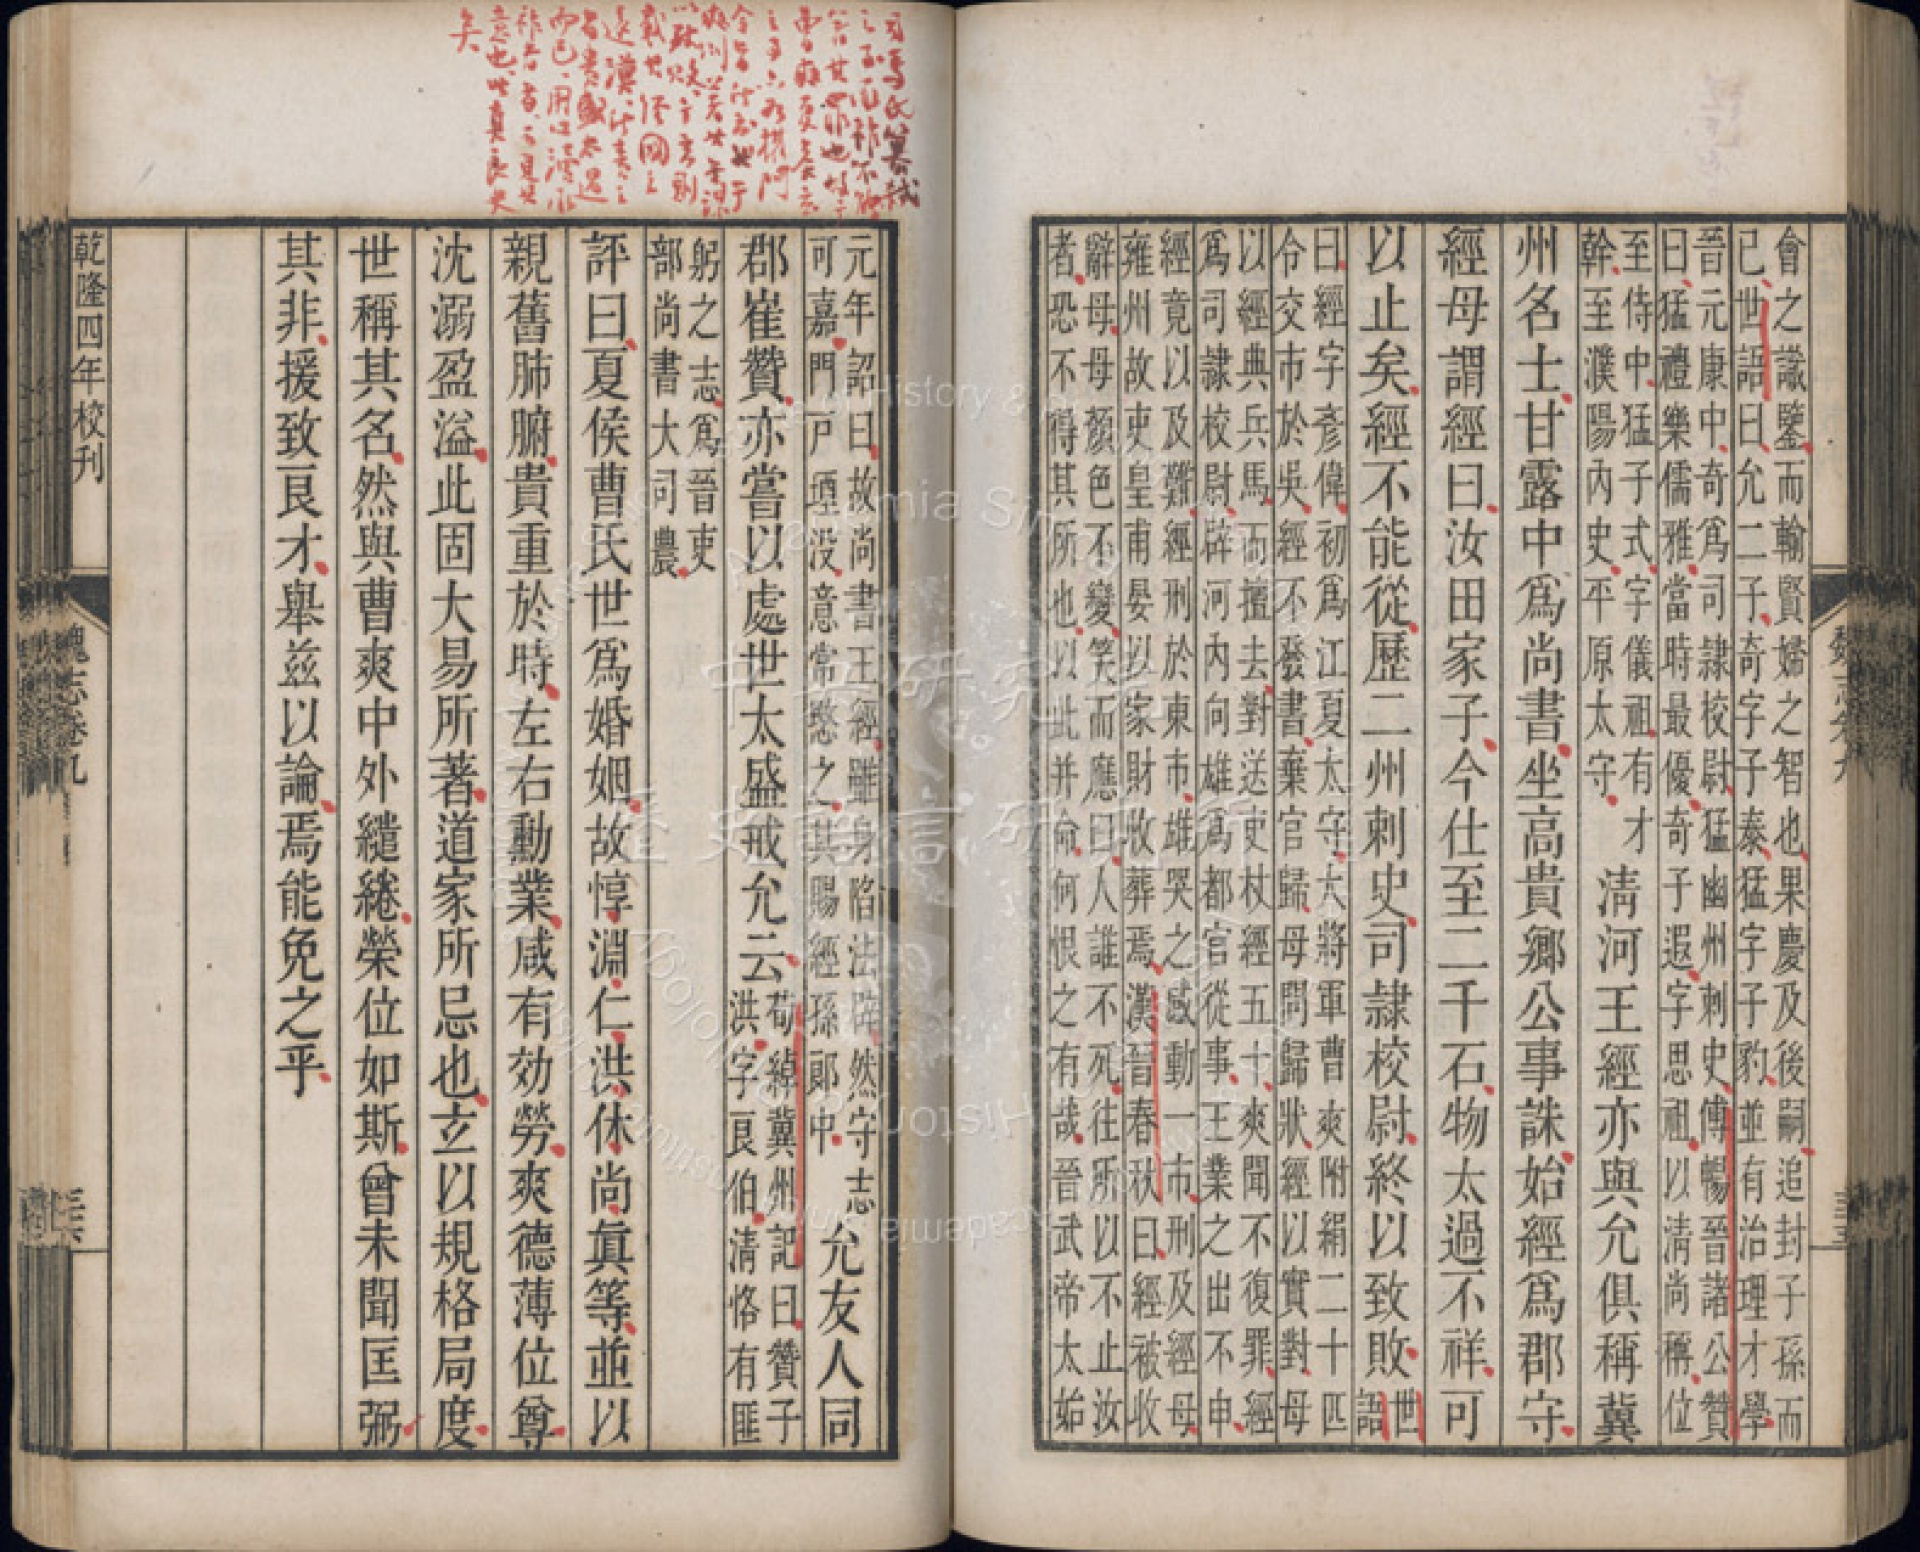 會之識鑒而輸賢婦之智也果慶及後嗣追封子孫而
已世語曰允二子奇字子泰猛字子豹並有治理才學
晉元康中奇爲司隷校尉猛幽州刺史傅暢晉諸公贊
曰猛禮樂儒雅當時最優奇子遐字思祖以清尚稱位
至侍中猛子式字儀祖有才
幹至濮陽內史平原太守
清河王經亦與允俱稱冀
州名士甘露中爲尚書坐高貴鄉公事誅始經爲郡守
經母謂經曰汝田家子今仕至二千石物太過不祥可
以止矣經不能從歷二州刺史司隷校尉終以致敗
世
語
曰經字彥偉初爲江夏太守大將軍曹爽附絹二十匹
令交市於吳經不發書棄官歸母問歸狀經以實對母
以經典兵馬而擅去對送吏杖經五十爽聞不復罪經
爲司隷校尉辟河內向雄爲都官從事王業之出不申
經竟以及難經刑於東市雄哭之感動一市刑及經母
雍州故吏皇甫晏以家財收葬焉漢晉春秋曰經被收
辭母母顏色不變笑而應曰人誰不死往所以不止汝
者恐不得其所也以此并命何恨之有哉晉武帝太始
元年詔曰故尚書王經雖身陷法辟然守志
可嘉門戸堙没意常愍之其賜經孫郎中
允友人同
郡崔贊亦嘗以處世太盛戒允云
荀綽冀州記曰贊子
洪字良伯清恪有匪
躬之志爲晉吏
部尚書大司農
評曰夏侯曹氏世爲婚姻故惇淵仁洪休尚眞等並以
親舊肺腑貴重於時左右勳業咸有効勞爽德薄位尊
沈溺盈溢此固大易所著道家所忌也玄以規格局度
世稱其名然與曹爽中外繾綣榮位如斯曾未聞匡弼
其非援致良才舉兹以論焉能免之乎
乾隆四年校刊
魏志卷九
中央研究院
歷史語言研究所